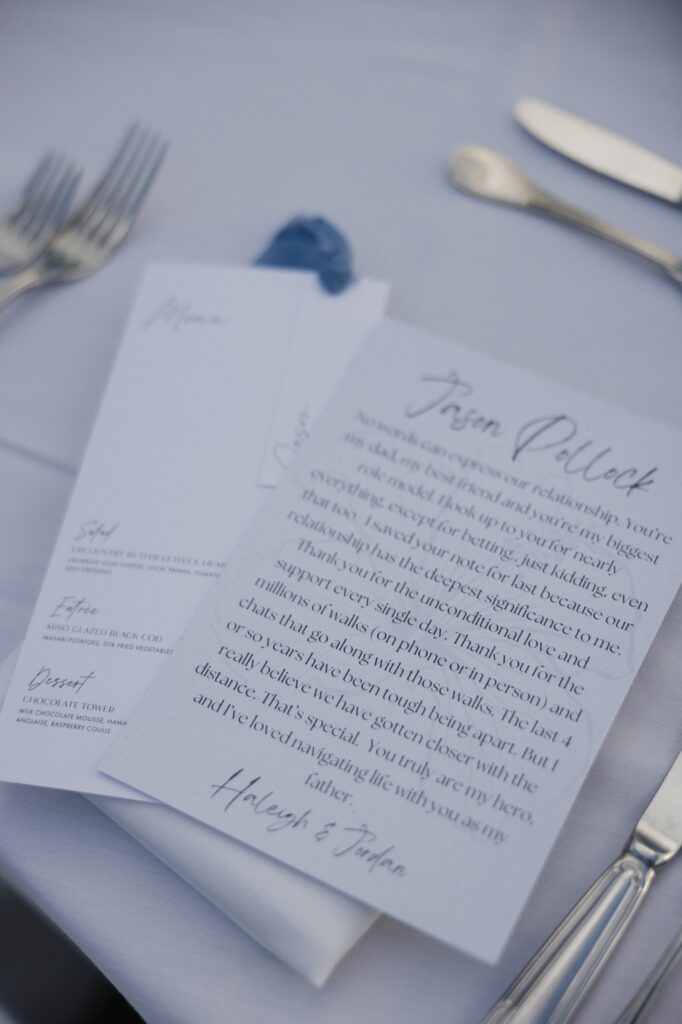 Menu
Salad
UPCOUNTRY BUTTER LETTUCE HEAR
CRUMBLED GOAT CHEESE, LOCAL PAPAYA, TOMATO
SEED DRESSING
Entrée
MISO GLAZED BLACK COD
WASABI POTATOES, STIR FRIED VEGETABLE
Dessert
CHOCOLATE TOWER
MILK CHOCOLATE MOUSSE, HAWA
ANGLAISE, RASPBERRY COULIS
Jason Pollock
No words can express our relationship. You're
my dad, my best friend and you're my biggest
role model. I look up to you for nearly
everything, except for betting.. just kidding, even
that too.. I saved your note for last because our
relationship has the deepest significance to me.
Thank you for the unconditional love and
support every single day. Thank you for the
millions of walks (on phone or in person) and
chats that go along with those walks. The last 4
or so years have been tough being apart. But I
really believe we have gotten closer with the
distance. That's special. You truly are my hero,
and I've loved navigating life with you as my
father.
Haleigh & Jordan